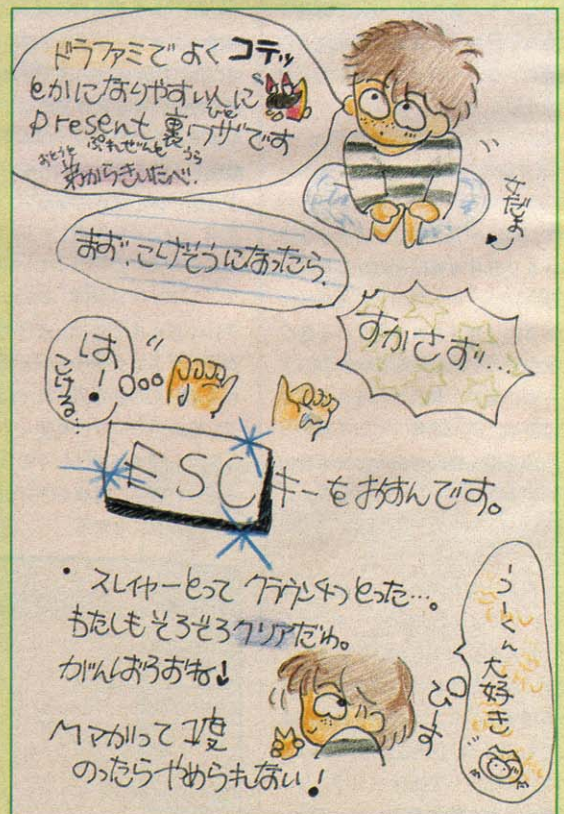 ドラファミでよくコテッ
とかになりやすい人に
ひと
present裏ワザです
ぷれぜんと うら
おとうと
弟からきいたべ.
女だよ
まず.こけそうになったら.
すかさず…
は〜!
こける…
ESCキーをおすんです。
・スレイヤーとってクラウン4つとった…。
わたしもそろそろクリアだわ。
がんばろおね
Mマガって1度
のったらやめられない!
ぴーす
うーくん大好き